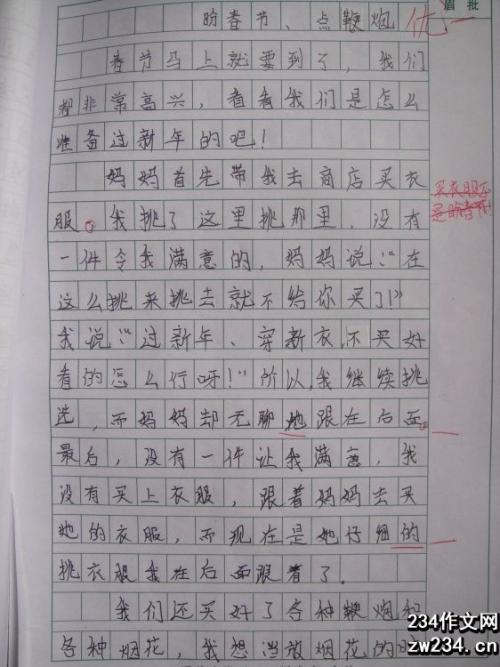 眉批
盼春节、点鞭炮 优一
春节马上就要到了，我们
都非常高兴，看看我们是怎么
准备过新年的吧！
妈妈首先带我去商店买衣
服。我挑了这里挑那里，没有
买衣服不
是盼春节！
一件令我满意的，妈妈说：“在
这么挑来挑去就不给你买了！”
我说：“过新年、穿新衣，不买好
看的怎么行呀！”所以，我继续挑
选，而妈妈却无聊地跟在后面。
最后，没有一件让我满意，我
没有买上衣服，跟着妈妈去买
她的衣服，而现在是她仔细的
挑衣服我在后面跟着了。
我们还买好了各种鞭炮和
各种烟花，我想当放烟花的时
234作文网
zw234.cn